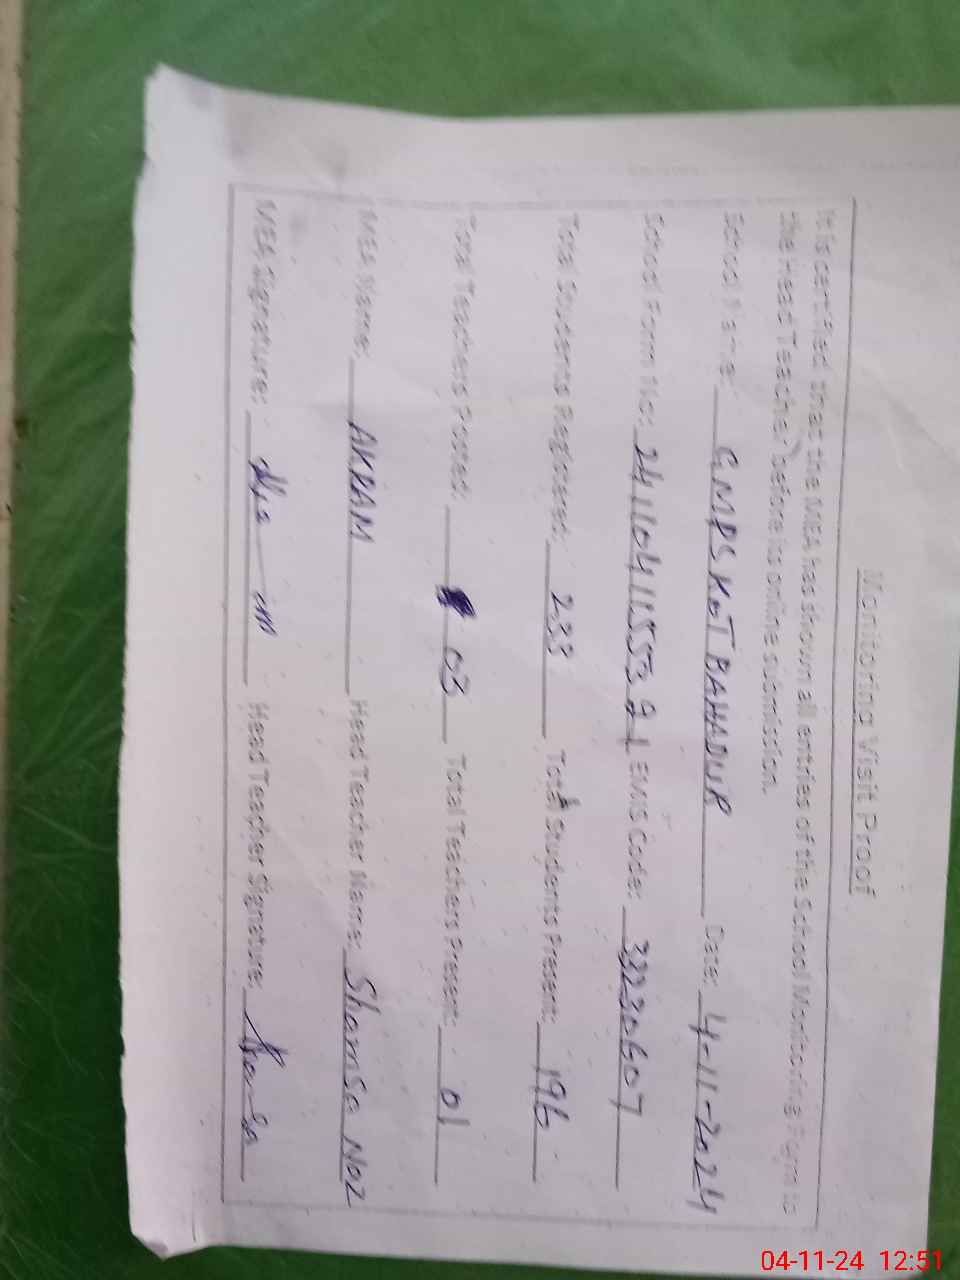 Monitoring Visit Proof
It is certified that the MEA has shown all entries of the School Monitoring Form to
the Head Teacher before its online submission.
School Name: GMPS KOT BAHADUR Date: 4-11-2024
School Form No: EMIS Code: 33230607
Total Students Registered: 233 Total Students Present: 196
Total Teachers Posted: 03 Total Teachers Present: 01
MEA Name: AKRAM Head Teacher Name: Shamsa Naz
MEA Signature: Head Teacher Signature: Shamsa
04-11-24 12:51